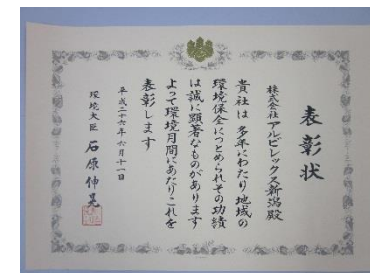 表彰状
株式会社アルビレックス新潟殿
貴社は多年にわたり地域の
環境保全につとめられその功績
は誠に顕著なものがあります
よって環境月間にあたりこれを
表彰します
平成二十六年六月十一日
環境大臣 石原伸晃